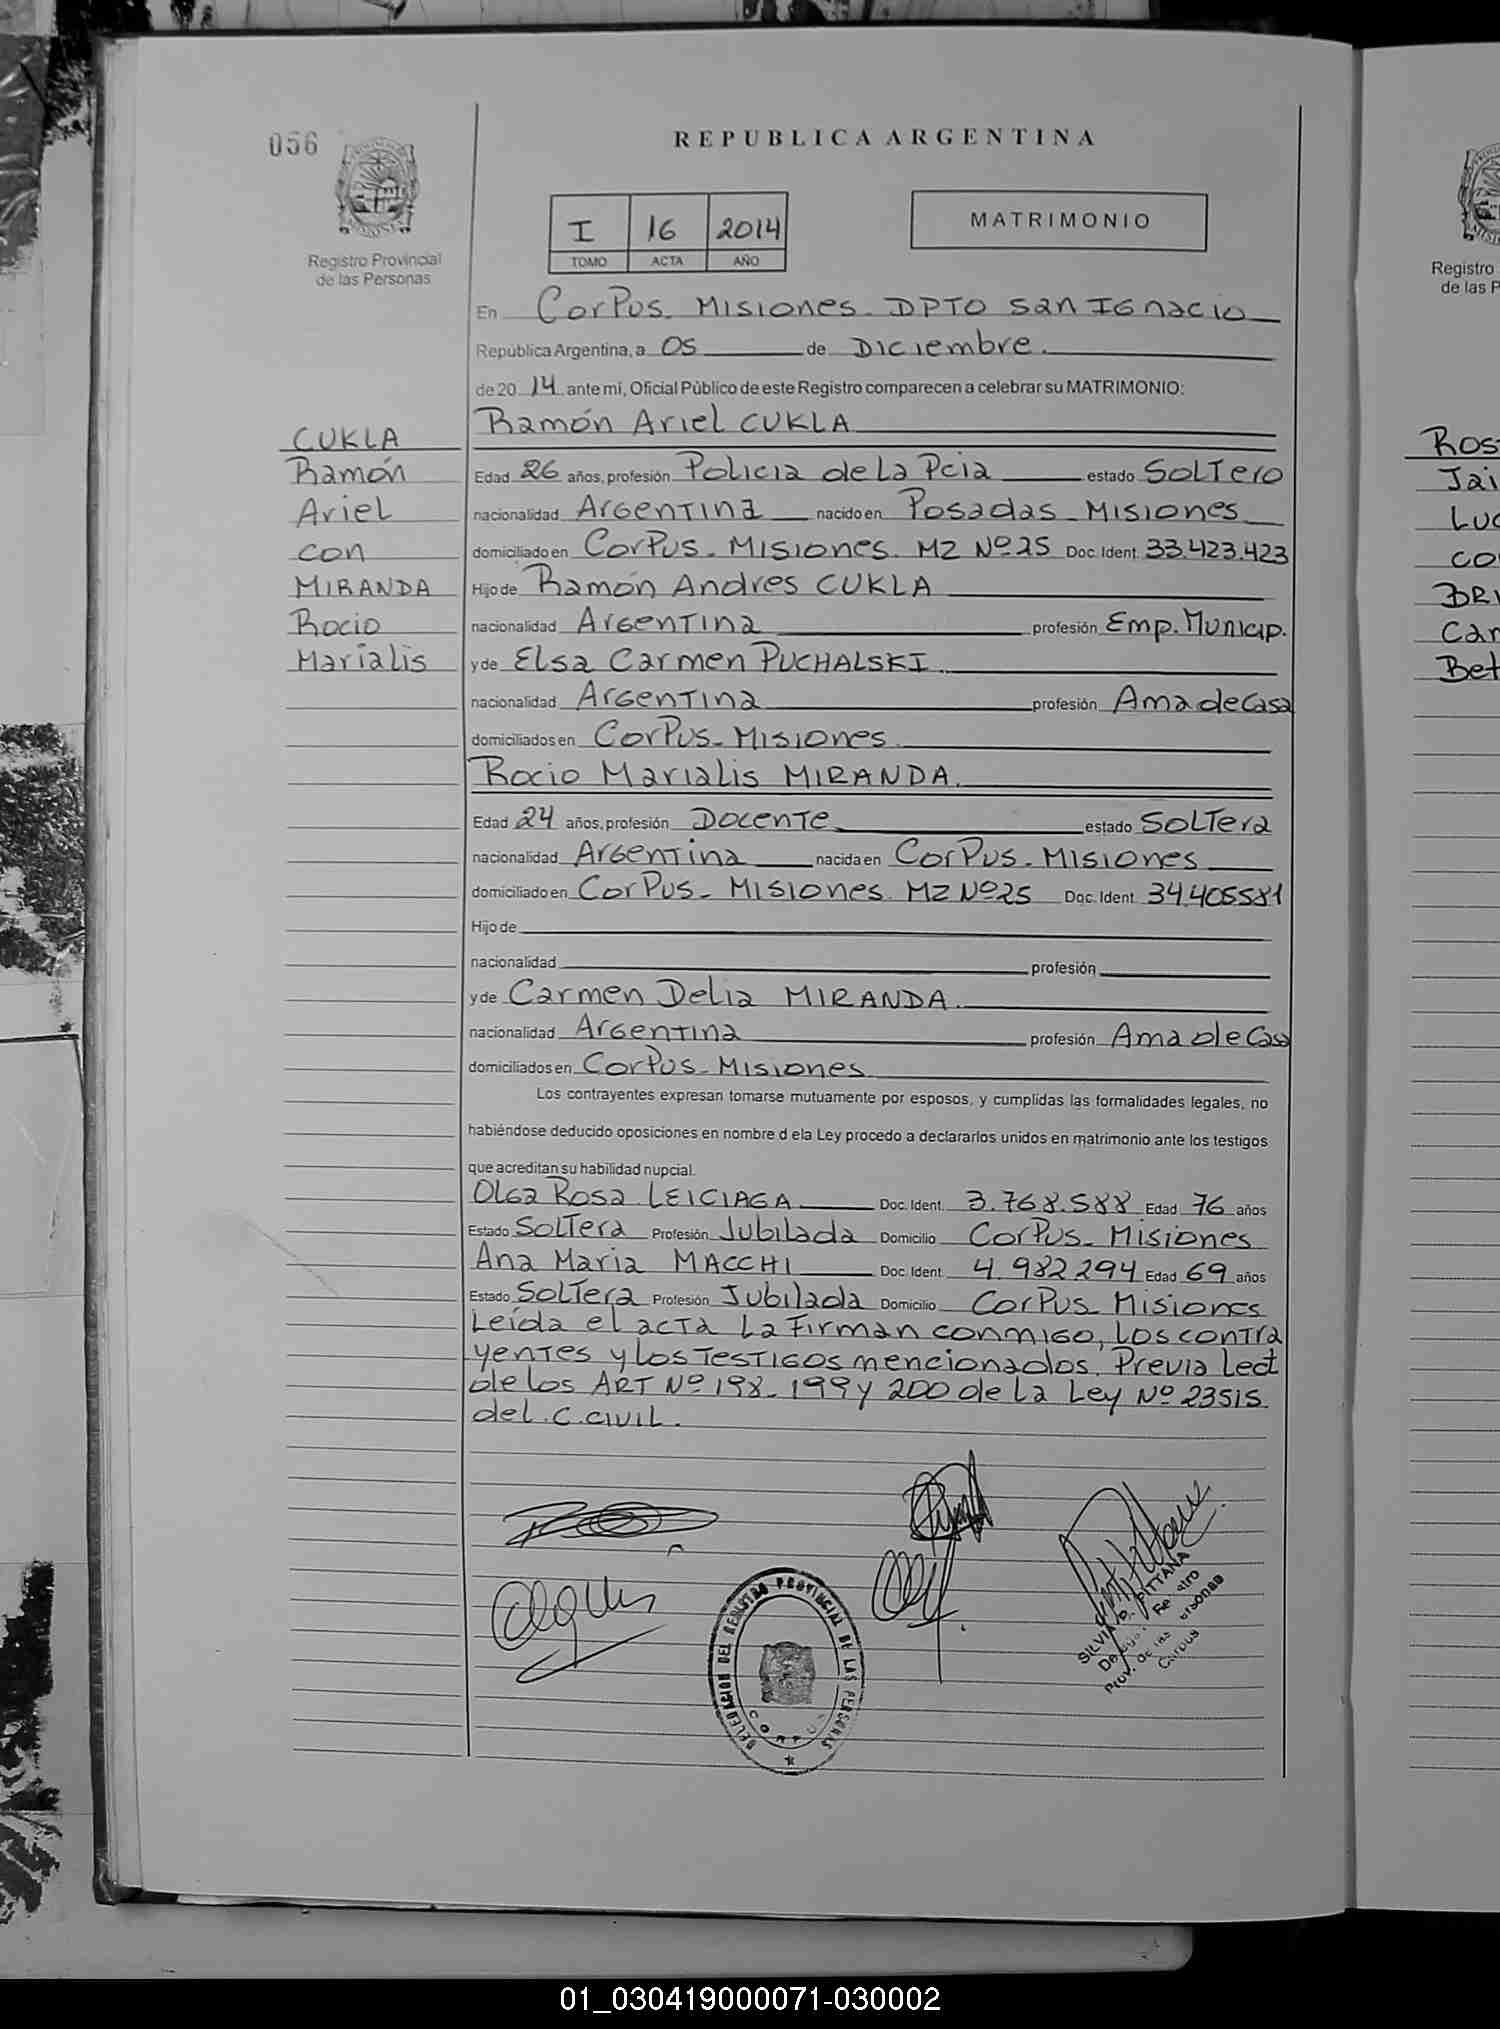 056
REPUBLICA ARGENTINA
I 16 2014
TOMO ACTA AÑO
MATRIMONIO
Registro Provincial
de las Personas
En Corpus. Misiones. DPTO San Ignacio
República Argentina, a 05 de Diciembre.
de 20 14 ante mi, Oficial Público de este Registro comparecen a celebrar su MATRIMONIO:
Ramón Ariel CUKLA
CUKLA
Ramón
Ariel
con
MIRANDA
Rocio
Marialis
Edad 26 años, profesión Policia de La Pcia estado Soltero
nacionalidad Argentina nacido en Posadas - Misiones
domiciliado en Corpus - Misiones. MZ Nº 25 Doc. Ident. 33.423.423
Hijo de Ramón Andres CUKLA
nacionalidad Argentina profesión Emp. Municip.
y de Elsa Carmen PUCHALSKI
nacionalidad Argentina profesión Ama de Casa
domiciliados en Corpus - Misiones
Rocio Marialis MIRANDA.
Edad 24 años, profesión Docente estado Soltera
nacionalidad Argentina nacida en Corpus - Misiones
domiciliado en Corpus - Misiones. MZ Nº 25 Doc. Ident. 34.405581
Hijo de
nacionalidad profesión
y de Carmen Delia MIRANDA.
nacionalidad Argentina profesión Ama de Casa
domiciliados en Corpus - Misiones
Los contrayentes expresan tomarse mutuamente por esposos, y cumplidas las formalidades legales, no
habiéndose deducido oposiciones en nombre d ela Ley procedo a declararlos unidos en matrimonio ante los testigos
que acreditan su habilidad nupcial.
Olga Rosa LEICIAGA Doc. Ident. 3.768.588 Edad 76 años
Estado Soltera Profesión Jubilada Domicilio Corpus - Misiones
Ana Maria MACCHI Doc. Ident. 4.982294 Edad 69 años
Estado Soltera Profesión Jubilada Domicilio Corpus - Misiones
Leída el acta La Firman conmigo, Los contra
yentes y los Testigos mencionados. Previa Lect
de los ART Nº 198 - 199 y 200 de la Ley Nº 23515
del. C. CIVIL.
DELEGACION DEL REGISTRO PROVINCIAL DE LAS PERSONAS
CORPUS
SILVIA PITTANA
Prov. de las Personas
Corpus
Registro
de las P
Ros
Jai
Luc
co
BRI
Car
Bet
01_030419000071-030002